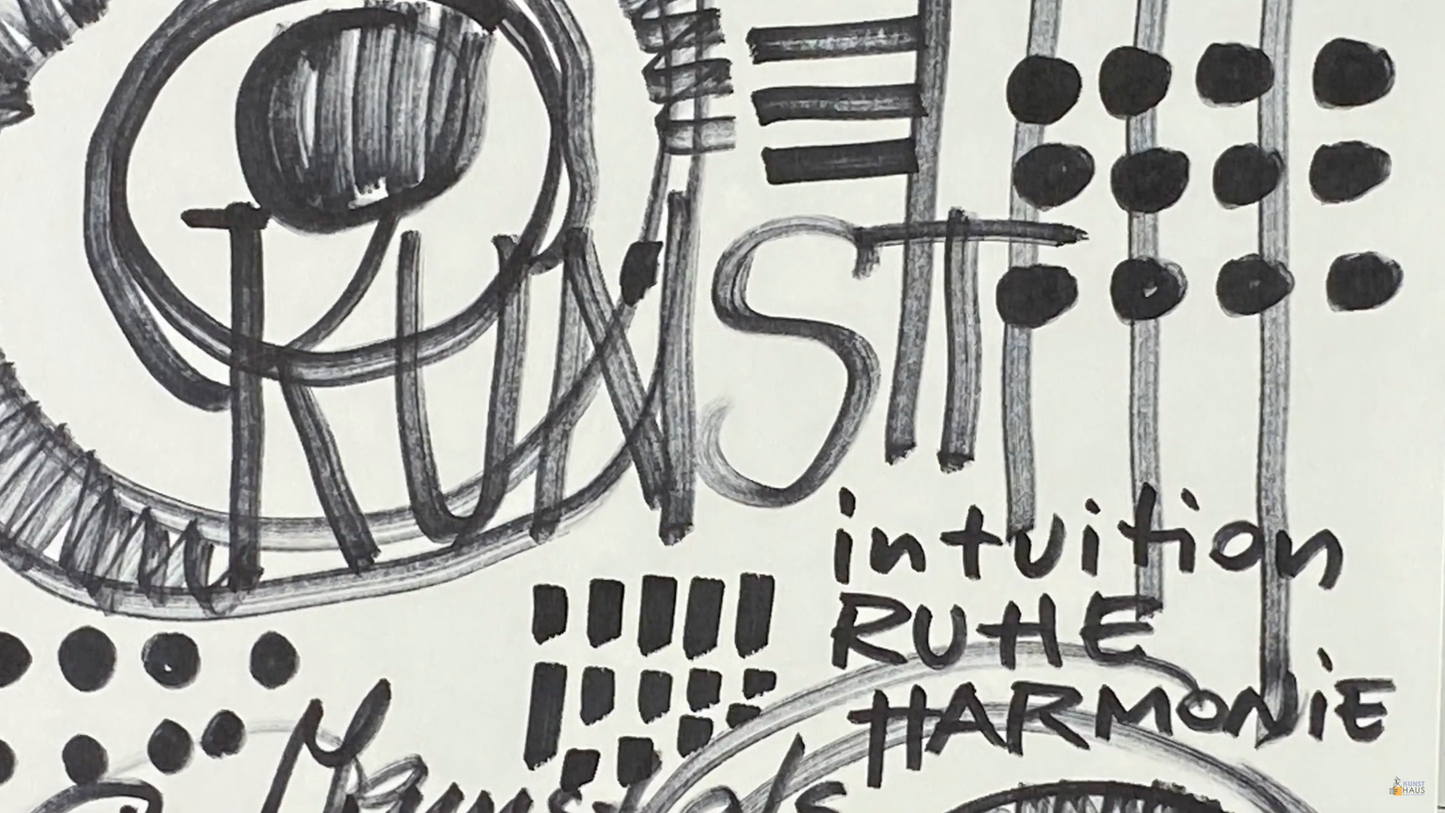 KUNST
intuition
RUHE
HARMONIE
Kunst als
KUNST
HAUS